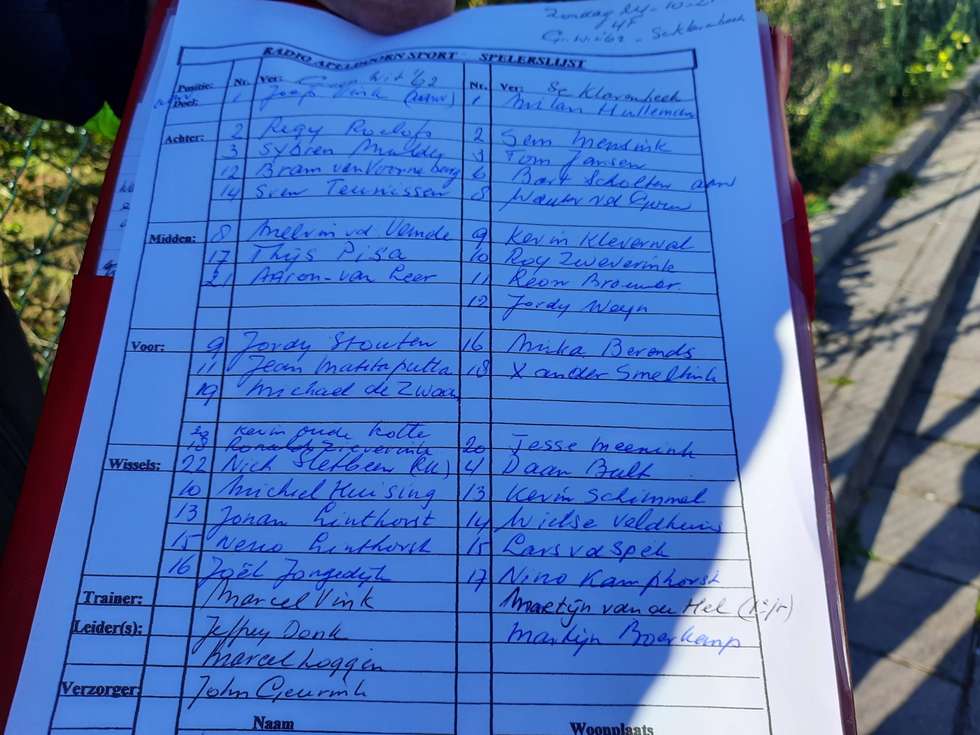 Zondag 24-10-2
RADIO APELDOORN SPORT - SPELERSLIJST
Positie: Nr. Ver: Groen Wit '62 Nr. Ver: Sc Klarenbeek
Doel: 1 Joop Vink (aanv) 1 Milan Hulleman
Achter: 2 Regy Roelofs 2 Sem Mensink
3 Sybren Mulder 3 Tom Jansen
12 Bram van Vorrneberg 6 Bart Scholten aanv
14 Sven Teunissen 8 Wouter vd
Midden: 8 Melvin vd Velude 9 Kevin Kleverwal
17 Thijs Pisa 10 Roy Zweverink
21 Aaron van Leer 11 Reon Brouwer
12 Jordy Weyn
Voor: 9 Jordy Stouten 16 Mika Berends
11 Jean Matitaputta 18 Xander Smeltink
19 Michael de Zwaan
20 Kevin oude Kotte
18 Ronald Zieverink 20 Jesse Meenink
Wissels: 22 Nick Sletbeen (RK) 4 Daan Bult
10 Michiel Huising 13 Kevin Schimmel
13 Johan Linthorst 14 Wietse Veldhuis
15 Neno Linthorst 15 Lars vd Spek
16 Joël Jongedijk 17 Nino Kamphorst
Trainer: Marcel Vink Martijn van de Hel (1e jr)
Leider(s): Jeffrey Donk Martijn Boerkamp
Marcel Loggin
Verzorger: John Geurink
Naam Woonplaats